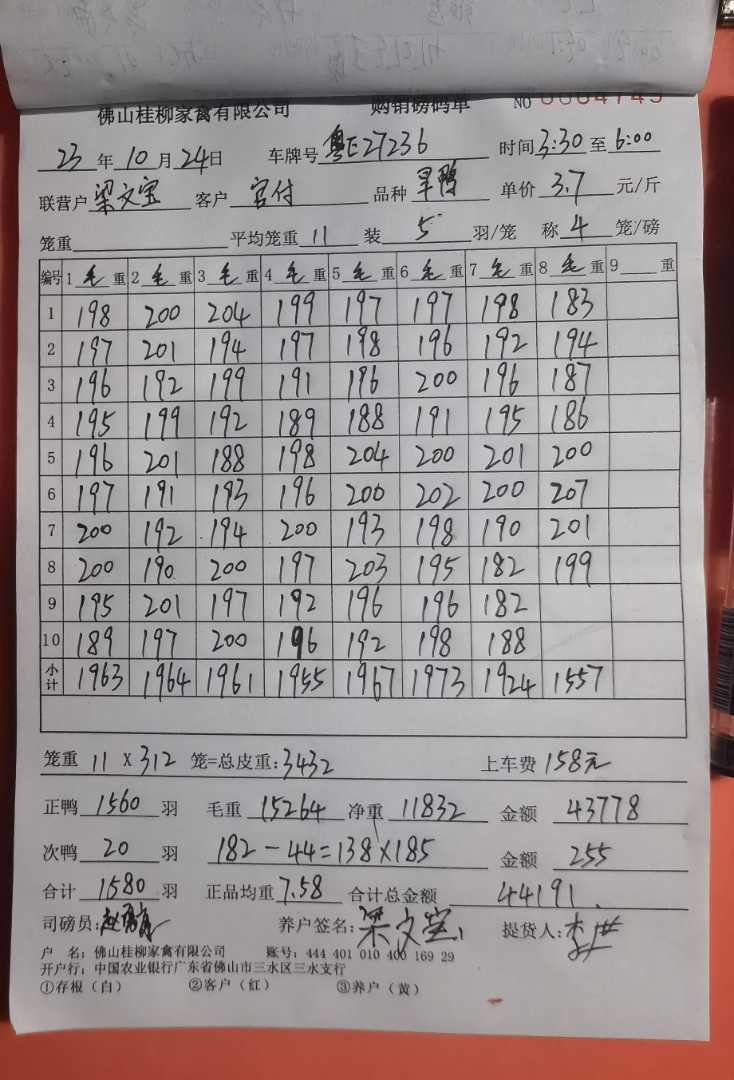 佛山桂柳家禽有限公司 购销磅码单 NO 0004745
23 年 10 月 24 日 车牌号 粤E27236 时间 3:30 至 6:00
联营户 梁文宝 客户 宫付 品种 旱鸭 单价 3.7 元/斤
笼重 平均笼重 11 装 5 羽/笼 称 4 笼/磅
编号 1 毛 重 2 毛 重 3 毛 重 4 毛 重 5 毛 重 6 毛 重 7 毛 重 8 毛 重 9 重
1 198 200 204 199 197 197 198 183
2 197 201 194 197 198 196 192 194
3 196 192 199 191 196 200 196 187
4 195 199 192 189 188 191 195 186
5 196 201 188 198 204 200 201 200
6 197 191 193 196 200 202 200 207
7 200 192 194 200 193 198 190 201
8 200 190 200 197 203 195 182 199
9 195 201 197 192 196 196 182
10 189 197 200 196 192 198 188
小计 1963 1964 1961 1955 1967 1973 1924 1557
笼重 11 X 312 笼=总皮重: 3432 上车费 158元
正鸭 1560 羽 毛重 15264 净重 11832 金额 43778
次鸭 20 羽 182-44=138×185 金额 255
合计 1580 羽 正品均重 7.58 合计总金额 44191.
司磅员: 养户签名: 梁文宝 提货人:
户 名: 佛山桂柳家禽有限公司 账号: 444 401 010 400 169 29
开户行: 中国农业银行广东省佛山市三水区三水支行
①存根（白） ②客户（红） ③养户（黄）